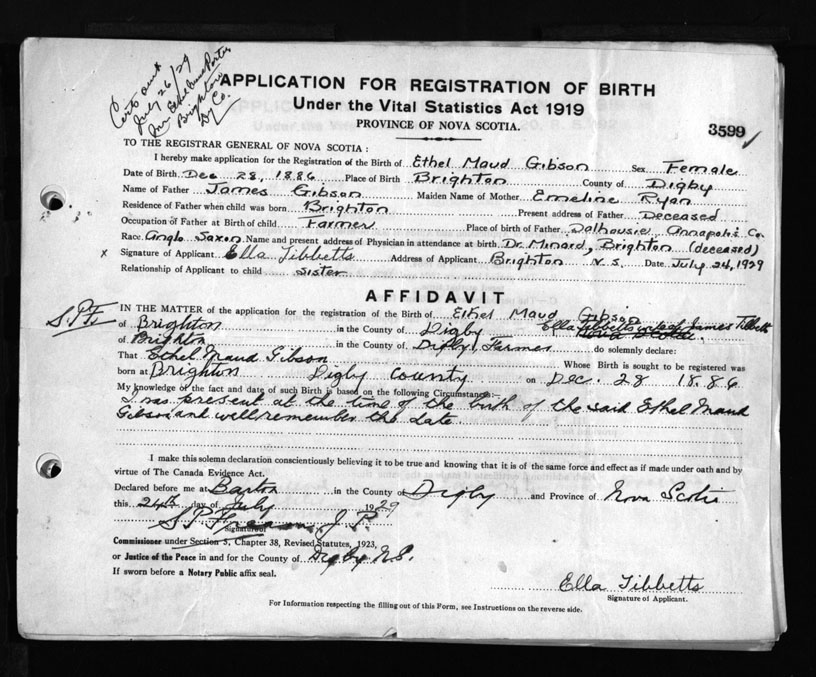 Cert out
July 26/29
Mrs Ethel Maud Porter
Brighton
Dy Co.
APPLICATION FOR REGISTRATION OF BIRTH
Under the Vital Statistics Act 1919
PROVINCE OF NOVA SCOTIA.
3599
TO THE REGISTRAR GENERAL OF NOVA SCOTIA :
I hereby make application for the Registration of the Birth of Ethel Maud Gibson Sex Female
Date of Birth Dec 28, 1886 Place of Birth Brighton County of Digby
Name of Father James Gibson Maiden Name of Mother Emeline Ryan
Residence of Father when child was born Brighton Present address of Father Deceased
Occupation of Father at Birth of child Farmer Place of birth of Father Dalhousie, Annapolis Co.
Race Anglo Saxon Name and present address of Physician in attendance at birth Dr. Minard, Brighton (deceased)
x Signature of Applicant Ella Tibbetts Address of Applicant Brighton N.S. Date July 24, 1929
Relationship of Applicant to child sister
AFFIDAVIT
S.P.F.
IN THE MATTER of the application for the registration of the Birth of Ethel Maud Gibson
of Brighton in the County of Digby Ella Tibbetts wife of James Tibbetts
of Brighton in the County of Digby, Farmer do solemnly declare:
That Ethel Maud Gibson Whose Birth is sought to be registered was
born at Brighton Digby County on Dec. 28 1886
My knowledge of the fact and date of such Birth is based on the following Circumstances:—
I was present at the time of the birth of the said Ethel Maud
Gibson and well remember the date
I make this solemn declaration conscientiously believing it to be true and knowing that it is of the same force and effect as if made under oath and by
virtue of The Canada Evidence Act.
Declared before me at Barton in the County of Digby and Province of Nova Scotia
this 24th day of July 1929
J. P.
Signature of
Commissioner under Section 3, Chapter 38, Revised Statutes, 1923,
or Justice of the Peace in and for the County of Digby N.S.
If sworn before a Notary Public affix seal.
Ella Tibbetts
Signature of Applicant.
For Information respecting the filling out of this Form, see Instructions on the reverse side.